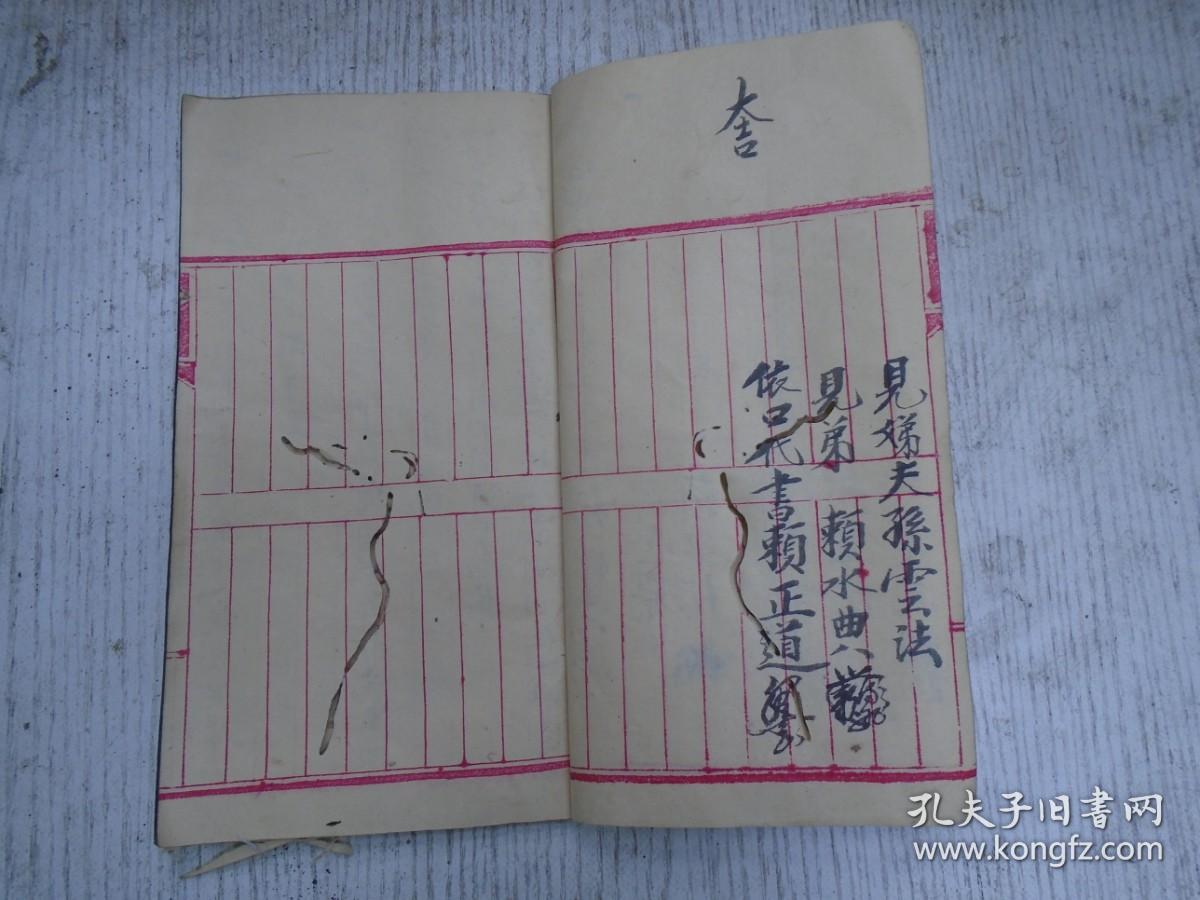 大吉
見娣夫孫雲法
見弟 賴水曲
依口代書賴正道
孔夫子旧书网
www.kongfz.com